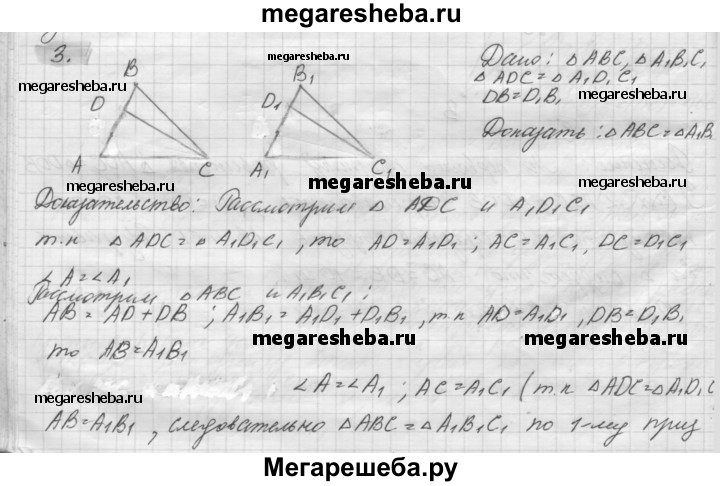 megaresheba.ru
3.
B
D
A
C
B₁
D₁
A₁
C₁
Дано: △ ABC, △ A₁B₁C₁
△ ADC = △ A₁D₁C₁
DB = D₁B₁
Доказать: △ABC = △A₁B₁
megaresheba.ru
megaresheba.ru
megaresheba.ru
megaresheba.ru
megaresheba.ru
Доказательство: Рассмотрим △ ADC и A₁D₁C₁
т.к △ ADC = △ A₁D₁C₁, то AD = A₁D₁; AC = A₁C₁, DC = D₁C₁
∠A = ∠A₁
Рассмотрим △ABC и A₁B₁C₁:
AB = AD + DB; A₁B₁ = A₁D₁ + D₁B₁, т.к AD = A₁D₁, DB = D₁B₁
то AB = A₁B₁
megaresheba.ru
megaresheba.ru
∠A = ∠A₁; AC = A₁C₁ (т.к △ADC = △A₁D₁C
AB = A₁B₁, следовательно △ABC = △A₁B₁C₁ по 1-му приз
Мегарешеба.ру